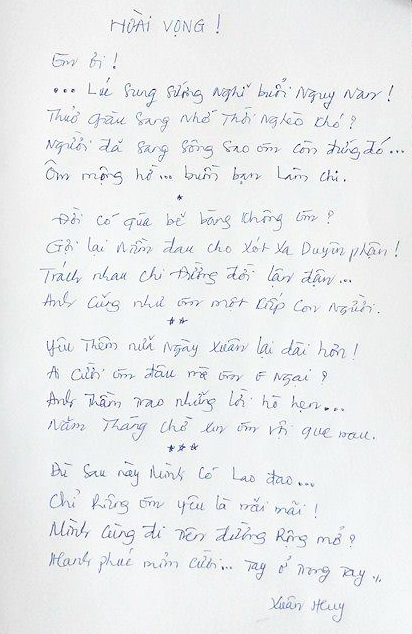 HOÀI VỌNG !
Em ơi !
... Lúc sung sướng nghĩ buổi nguy nan !
Thuở giàu sang nhớ thời nghèo khó ?
Người đã sang sông sao em còn đứng đó...
Ôm mộng hờ... buồn bạn làm chi.
*
Đời có quá bẽ bàng không em ?
Gởi lại niềm đau cho xót xa duyên phận !
Trách nhau chi đường đời lận đận...
Anh cũng như em một kiếp con người.
**
Yêu thêm nữa ngày xuân lại dài hơn !
Ai cười em đâu mà em e ngại ?
Anh thầm trao những lời hò hẹn...
Năm tháng chờ em rồi qua mau.
***
Dù sau này mình có lao đao...
Chỉ riêng em yêu là mãi mãi !
Mình cùng đi trên đường rộng mở ?
Hạnh phúc mỉm cười... tay ở trong tay ./.
Xuân Huy